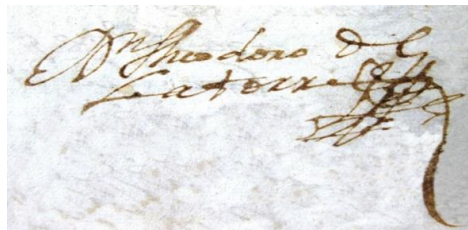 Dn Theodoro de
Laterre